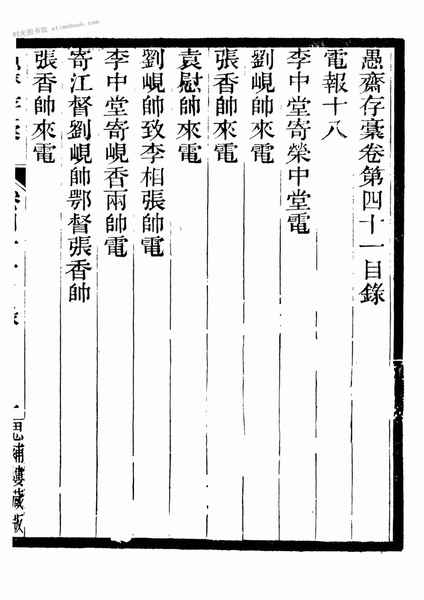 愚齋存藁卷第四十一目錄
電報十八
李中堂寄榮中堂電
劉峴帥來電
張香帥來電
袁慰帥來電
劉峴帥致李相張帥電
李中堂寄峴香兩帥電
寄江督劉峴帥鄂督張香帥
張香帥來電
思補樓藏版